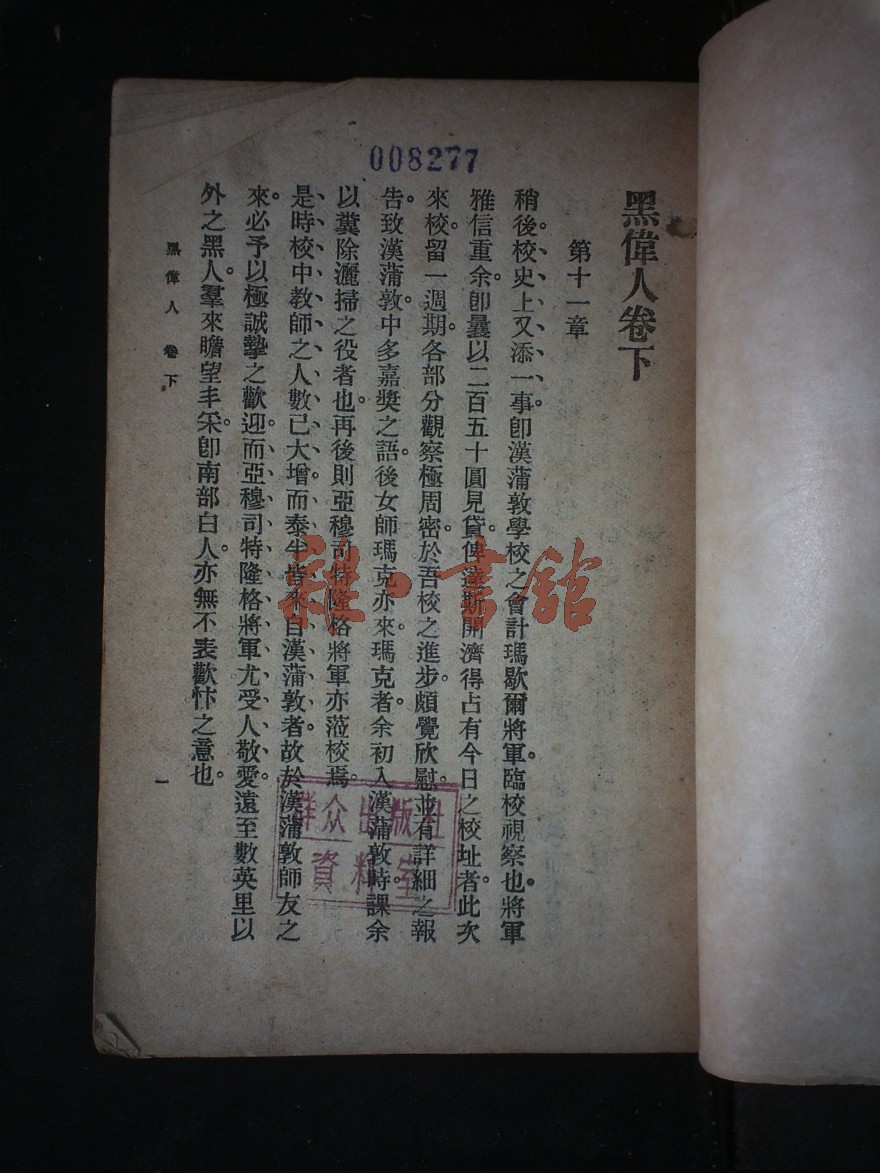 008277
黑偉人卷下
第十一章
稍後。校史上又添一事。卽漢蒲敦學校之會計瑪歇爾將軍。臨校視察也。將軍
雅信重余。卽曩以二百五十圓見貸。俾達斯開濟得占有今日之校址者。此次
來校。留一週期。各部分觀察極周密。於吾校之進步。頗覺欣慰。並有詳細之報
告。致漢蒲敦。中多嘉獎之語。後女師瑪克亦來。瑪克者。余初入漢蒲敦時。課余
以糞除灑掃之役者也。再後則亞穆司特隆格將軍亦蒞校焉。
是時校中教師之人數已大增。而泰半皆來自漢蒲敦者。故於漢蒲敦師友之
來。必予以極誠摯之歡迎。而亞穆司特隆格將軍尤受人敬愛。遠至數英里以
外之黑人。羣來瞻望丰采。卽南部白人。亦無不表歡忭之意也。
黑偉人 卷下
一
雜·書館
群众出版社
資料室